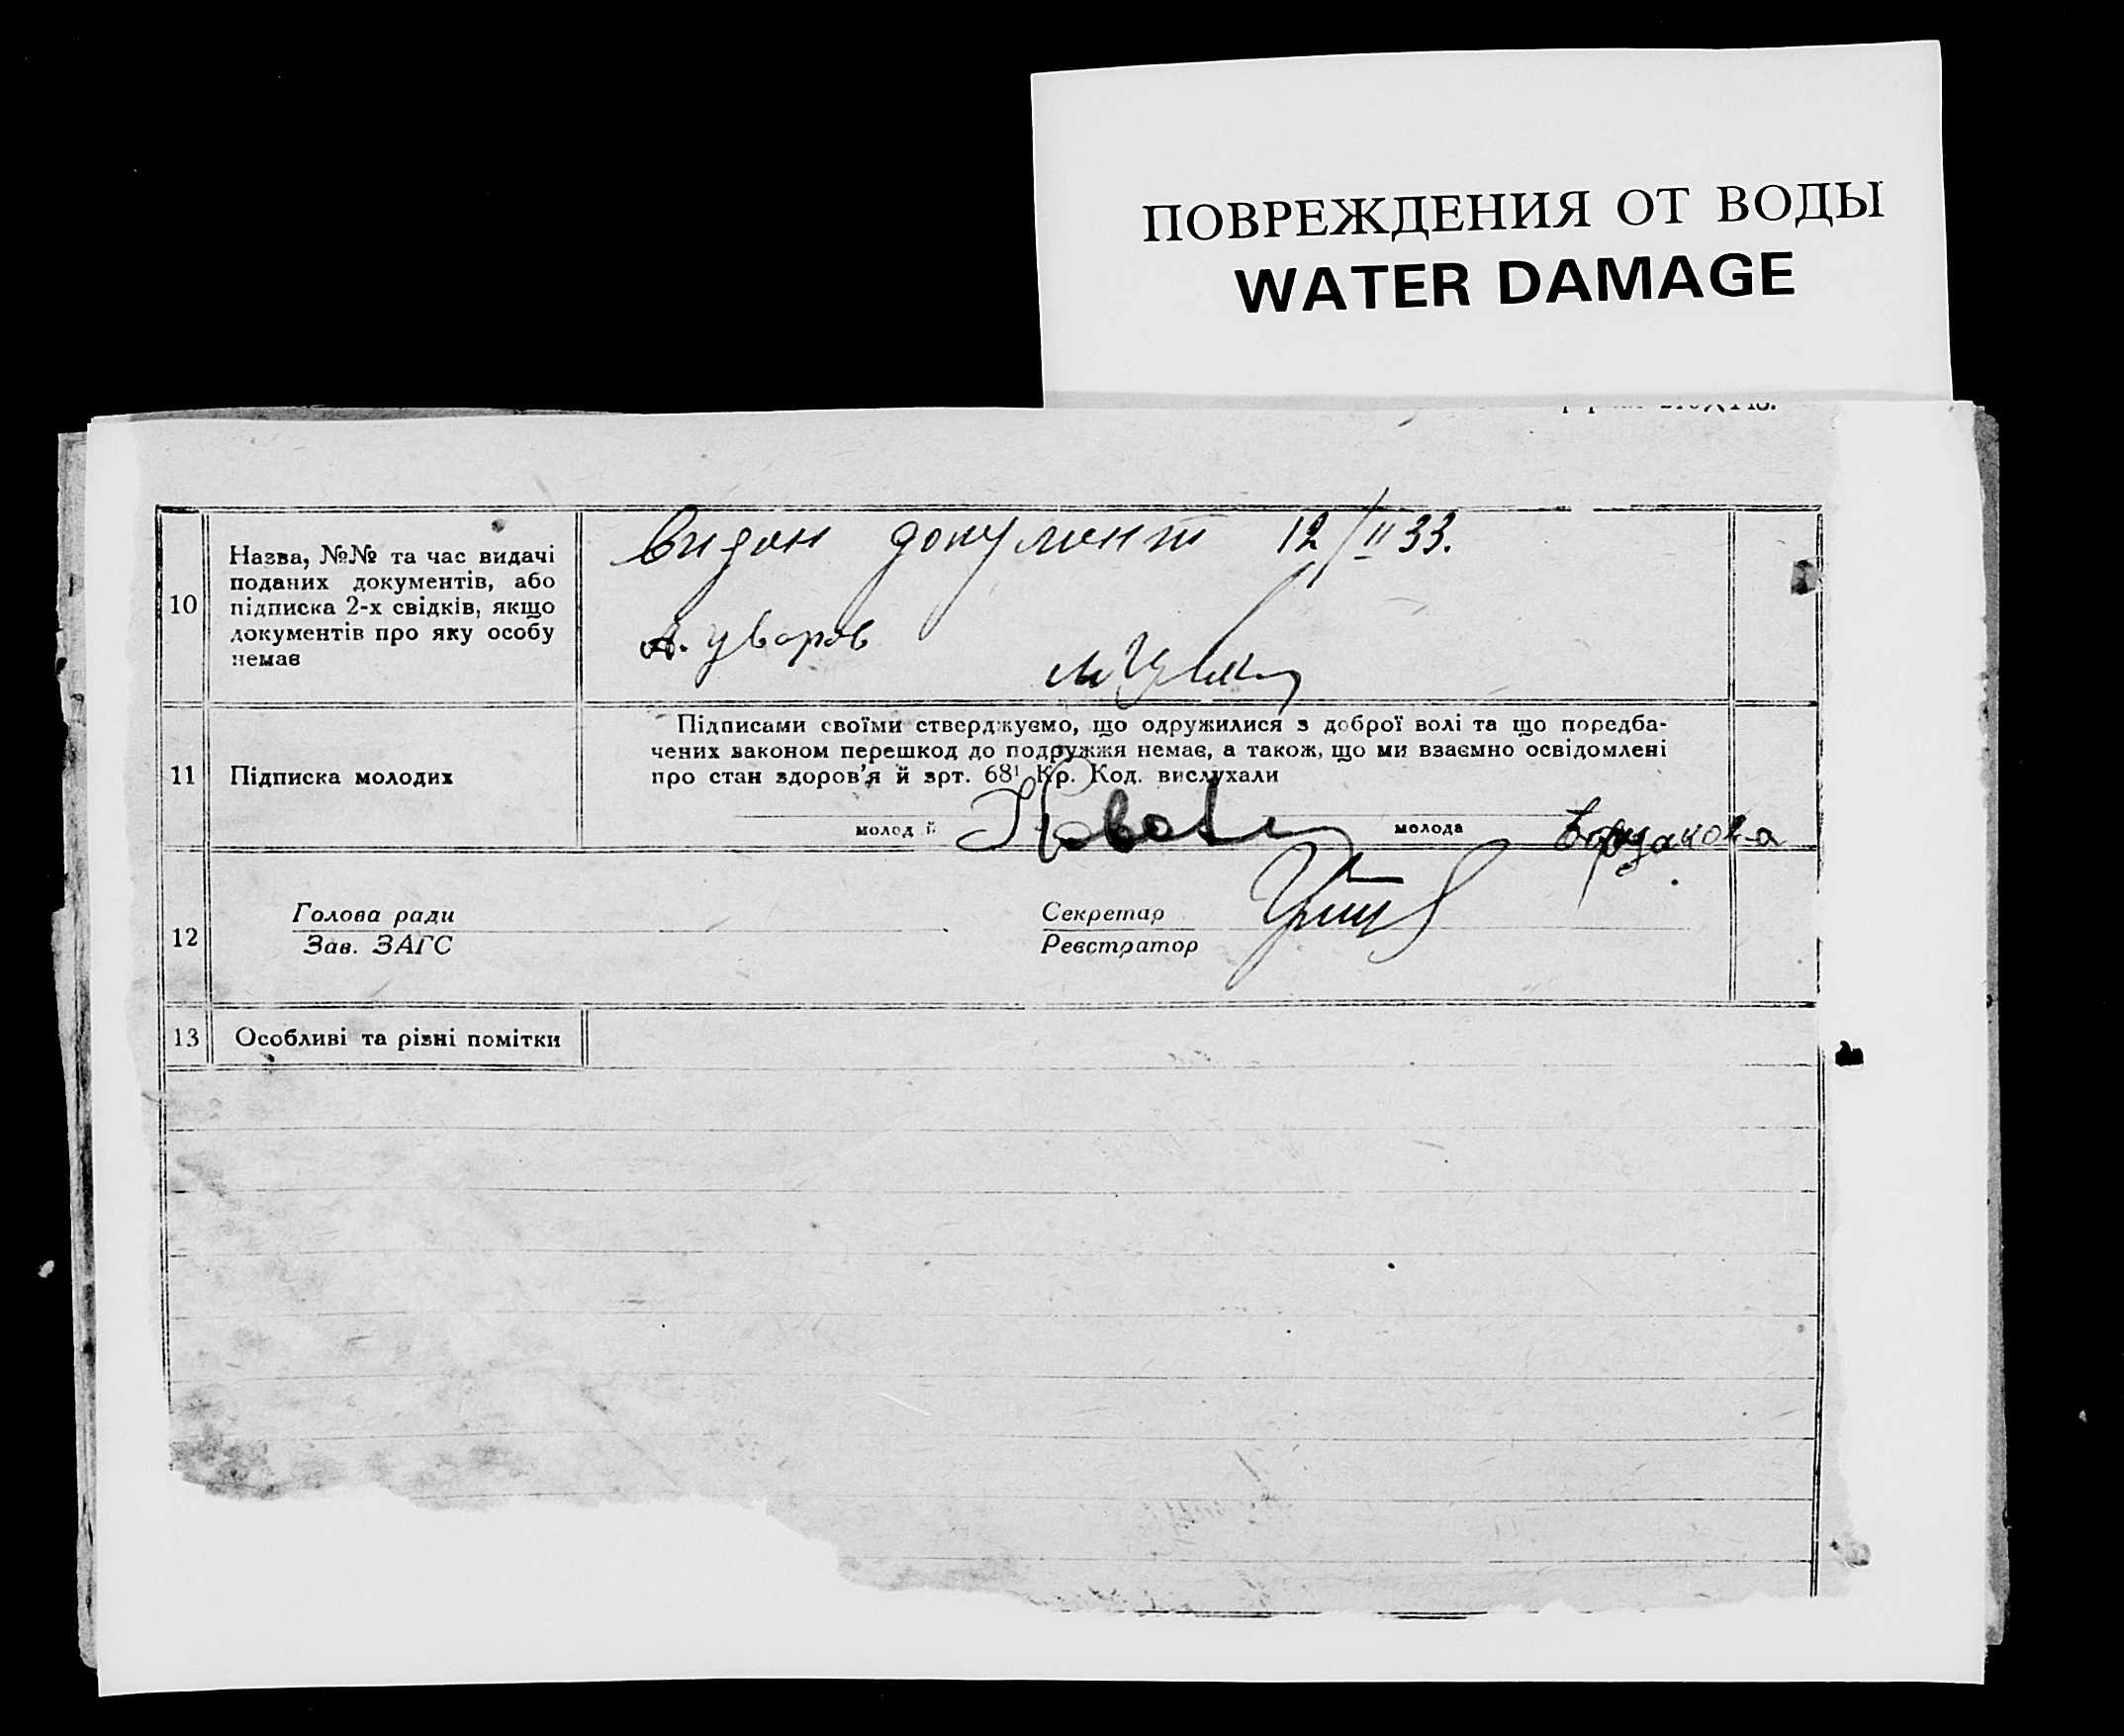 ПОВРЕЖДЕНИЯ ОТ ВОДЫ
WATER DAMAGE
10
Назва, №№ та час видачі
поданих документів, або
підписка 2-х свідків, якщо
документів про яку особу
немає
Видан документ 12/II 33.
А. Уваров
11
Підписка молодих
Підписами своїми стверджуємо, що одружилися з доброї волі та що поредба-
чених законом перешкод до подружжя немає, а також, що ми взаємно освідомлені
про стан здоров'я й арт. 68¹ Кр. Код. вислухали
молодий
молода
12
Голова ради
Зав. ЗАГС
Секретар
Реєстратор
13
Особливі та різні помітки